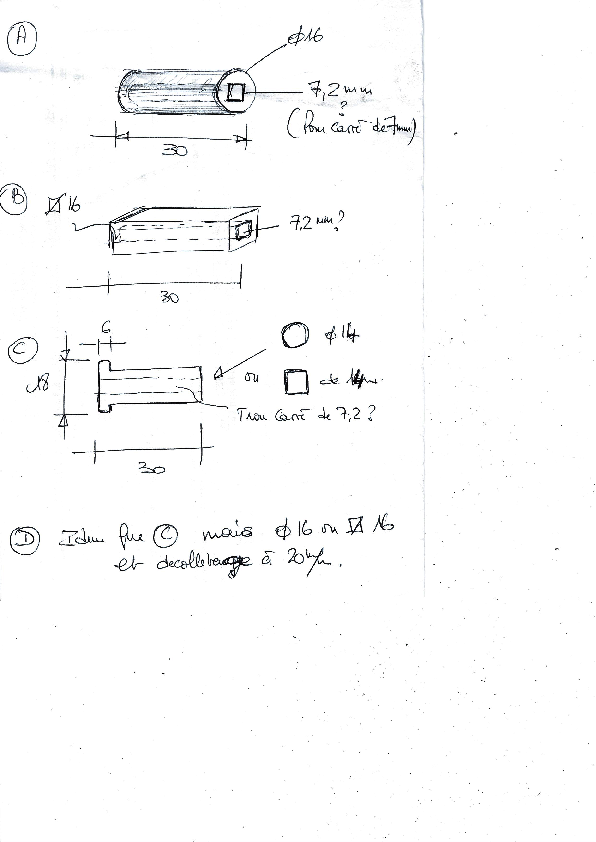 A
ϕ16
7,2 mm
?
(Pour carré de 7mm)
30
B
16
7,2 mm?
30
C
6
18
ϕ 14
ou
de 14
Trou carré de 7,2 ?
30
D Idem que C mais ϕ 16 ou 16
et decolletage à 20 m/m.